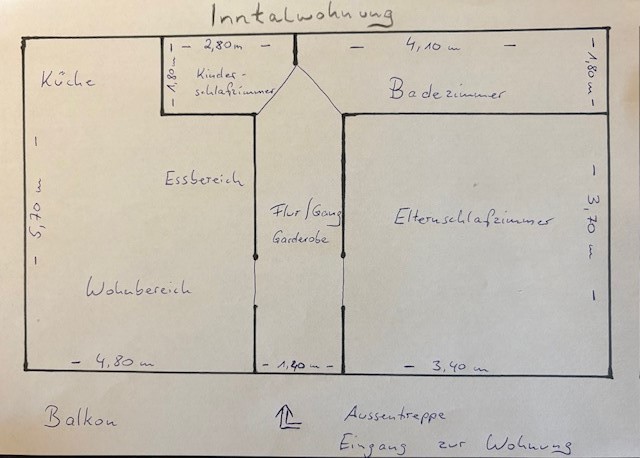 Inntalwohnung
- 2,80m -
- 4,10 m -
- 1,80m -
- 1,80m -
Küche
Kinder-
schlafzimmer
Badezimmer
Essbereich
- 5,70 m -
Flur/Gang
Garderobe
Elternschlafzimmer
- 3,70 m -
Wohnbereich
- 4,80 m -
- 1,20m -
- 3,40 m -
Balkon
Aussentreppe
Eingang zur Wohnung